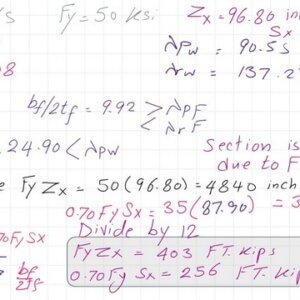 Fy = 50 ksi
Zx = 96.80 inc
Sx
λpw = 90.55
λrw = 137.2
bf/2tf = 9.92 > λpF
< λrF
24.90 < λpw
Section is
due to F
Fy Zx = 50 (96.80) = 4840 inch
0.70 Fy Sx = 35 (87.90) = 3
Divide by 12
FyZx = 403 FT. kips
0.70 Fy Sx = 256 FT. kip
bf
2tf